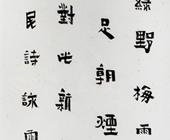 綠野梅雨
足朝煙
對此新
民詩詠